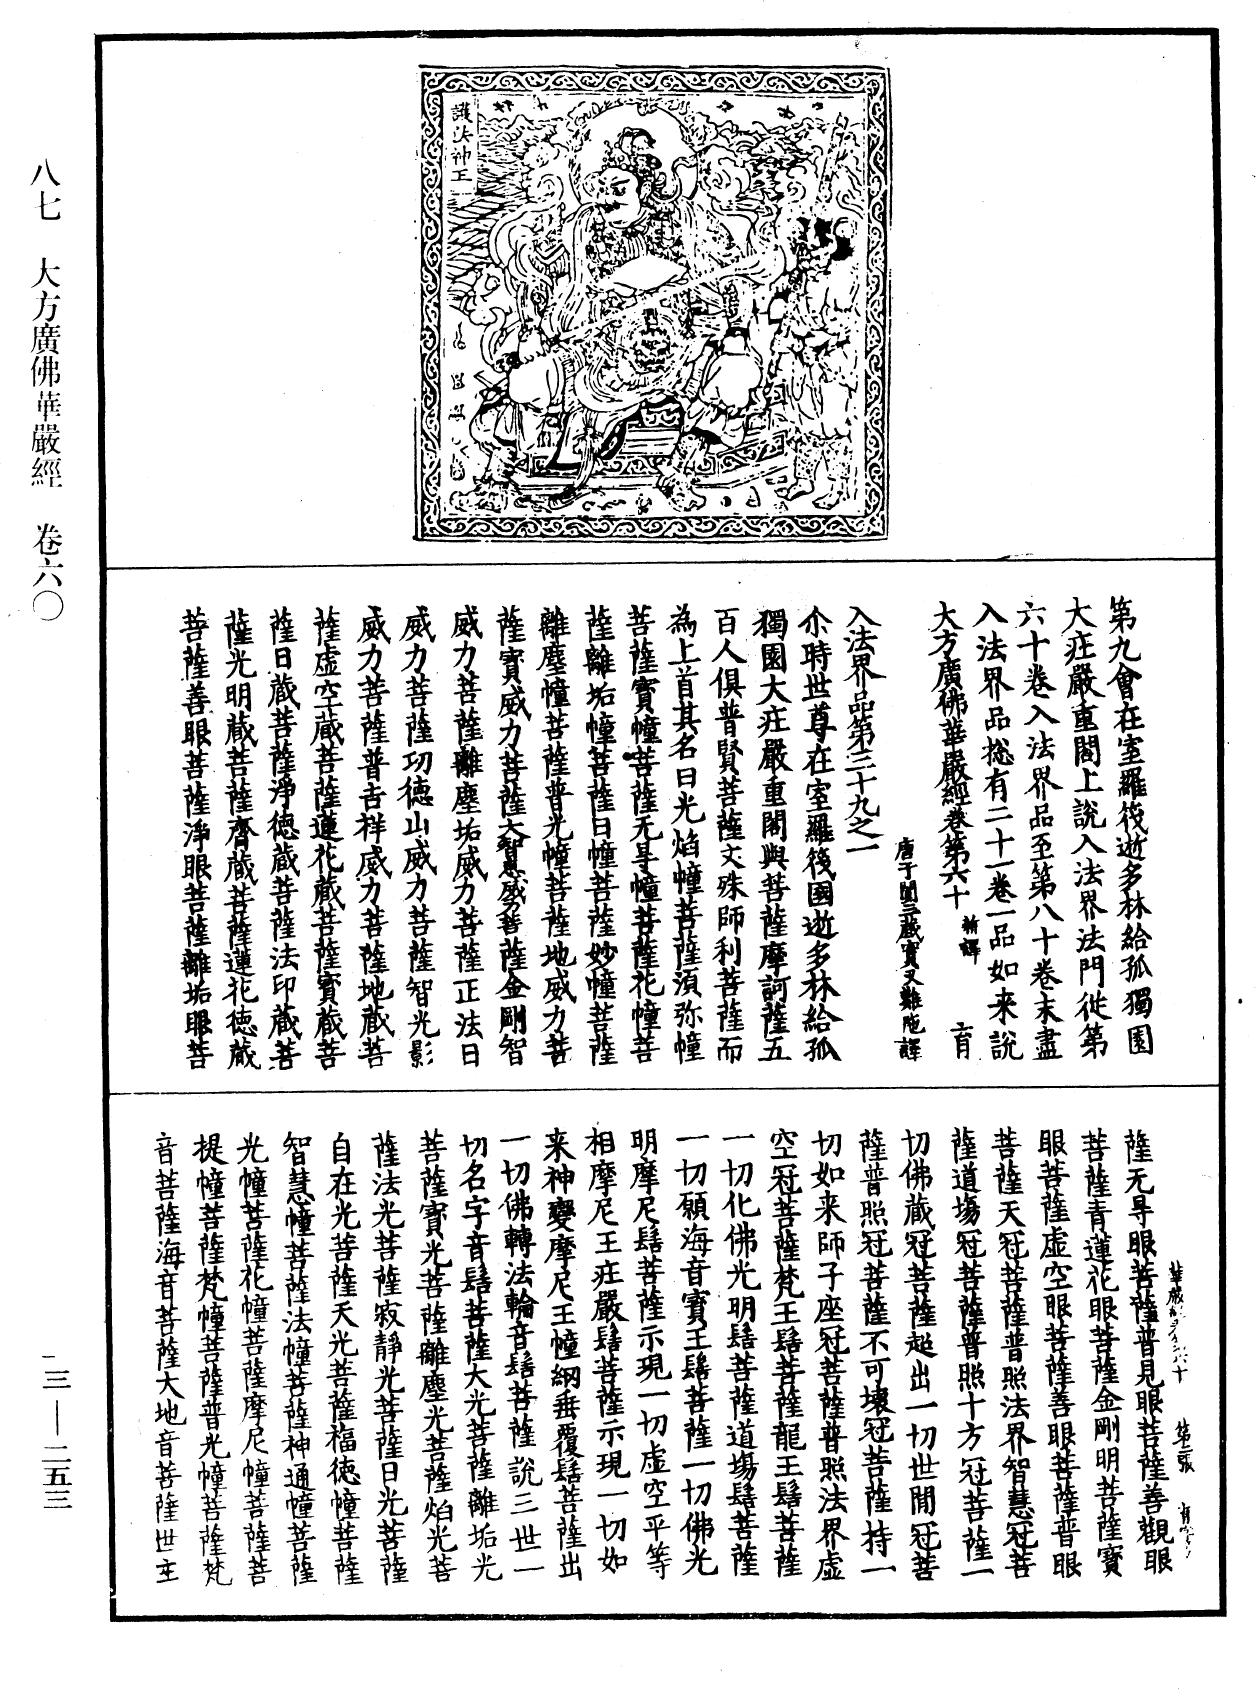 八七　大方廣佛華嚴經　卷六〇
一三—二五三
護法神王
第九會在室羅筏逝多林給孤獨園
大庄嚴重閣上說入法界法門從第
六十卷入法界品至第八十卷末盡
入法界品揔有二十一卷一品如来說
大方廣佛華嚴經卷第六十　新譯
唐于闐三藏實叉難陁譯
入法界品第三十九之一
尒時世尊在室羅筏國逝多林給孤
獨園大庄嚴重閣與菩薩摩訶薩五
百人俱普賢菩薩文殊師利菩薩而
為上首其名曰光焰幢菩薩須弥幢
菩薩寶幢菩薩无㝵幢菩薩花幢菩
薩離垢幢菩薩日幢菩薩妙幢菩薩
離塵幢菩薩普光幢菩薩地威力菩
薩寶威力菩薩大智慧威力菩薩金剛智
威力菩薩離塵垢威力菩薩正法日
威力菩薩功德山威力菩薩智光影
威力菩薩普吉祥威力菩薩地藏菩
薩虛空藏菩薩蓮花藏菩薩寶藏菩
薩日藏菩薩淨德藏菩薩法印藏菩
薩光明藏菩薩齊藏菩薩蓮花德藏
菩薩善眼菩薩淨眼菩薩離垢眼菩
薩无㝵眼菩薩普見眼菩薩善觀眼
菩薩青蓮花眼菩薩金剛明菩薩寶
眼菩薩虛空眼菩薩善眼菩薩普眼
菩薩天冠菩薩普照法界智慧冠菩
薩道塲冠菩薩普照十方冠菩薩一
切佛藏冠菩薩超出一切世間冠菩
薩普照冠菩薩不可壞冠菩薩持一
切如来師子座冠菩薩普照法界虛
空冠菩薩梵王髻菩薩龍王髻菩薩
一切化佛光明髻菩薩道塲髻菩薩
一切願海音寶王髻菩薩一切佛光
明摩尼髻菩薩示現一切虛空平等
相摩尼王庄嚴髻菩薩示現一切如
来神變摩尼王幢網垂覆髻菩薩出
一切佛轉法輪音髻菩薩說三世一
切名字音髻菩薩大光菩薩離垢光
菩薩寶光菩薩離塵光菩薩焰光菩
薩法光菩薩寂靜光菩薩日光菩薩
自在光菩薩天光菩薩福德幢菩薩
智慧幢菩薩法幢菩薩神通幢菩薩
光幢菩薩花幢菩薩摩尼幢菩薩菩
提幢菩薩梵幢菩薩普光幢菩薩梵
音菩薩海音菩薩大地音菩薩世主